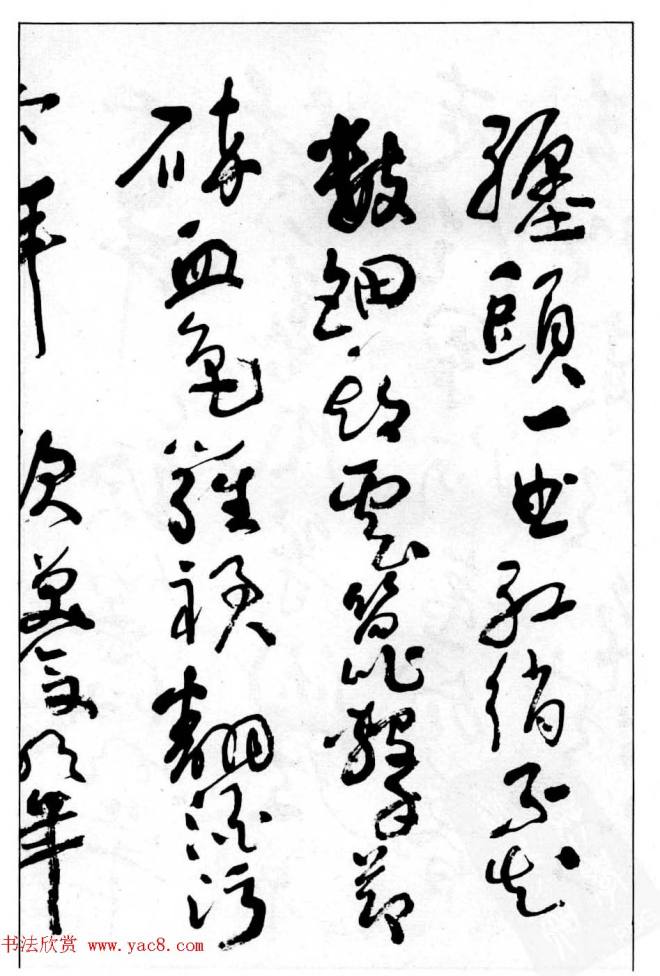 纏頭一曲紅綃不知
數鈿頭雲篦擊節
碎血色羅裙翻酒污
年 歡笑復明年
书法欣赏 www.yac8.com